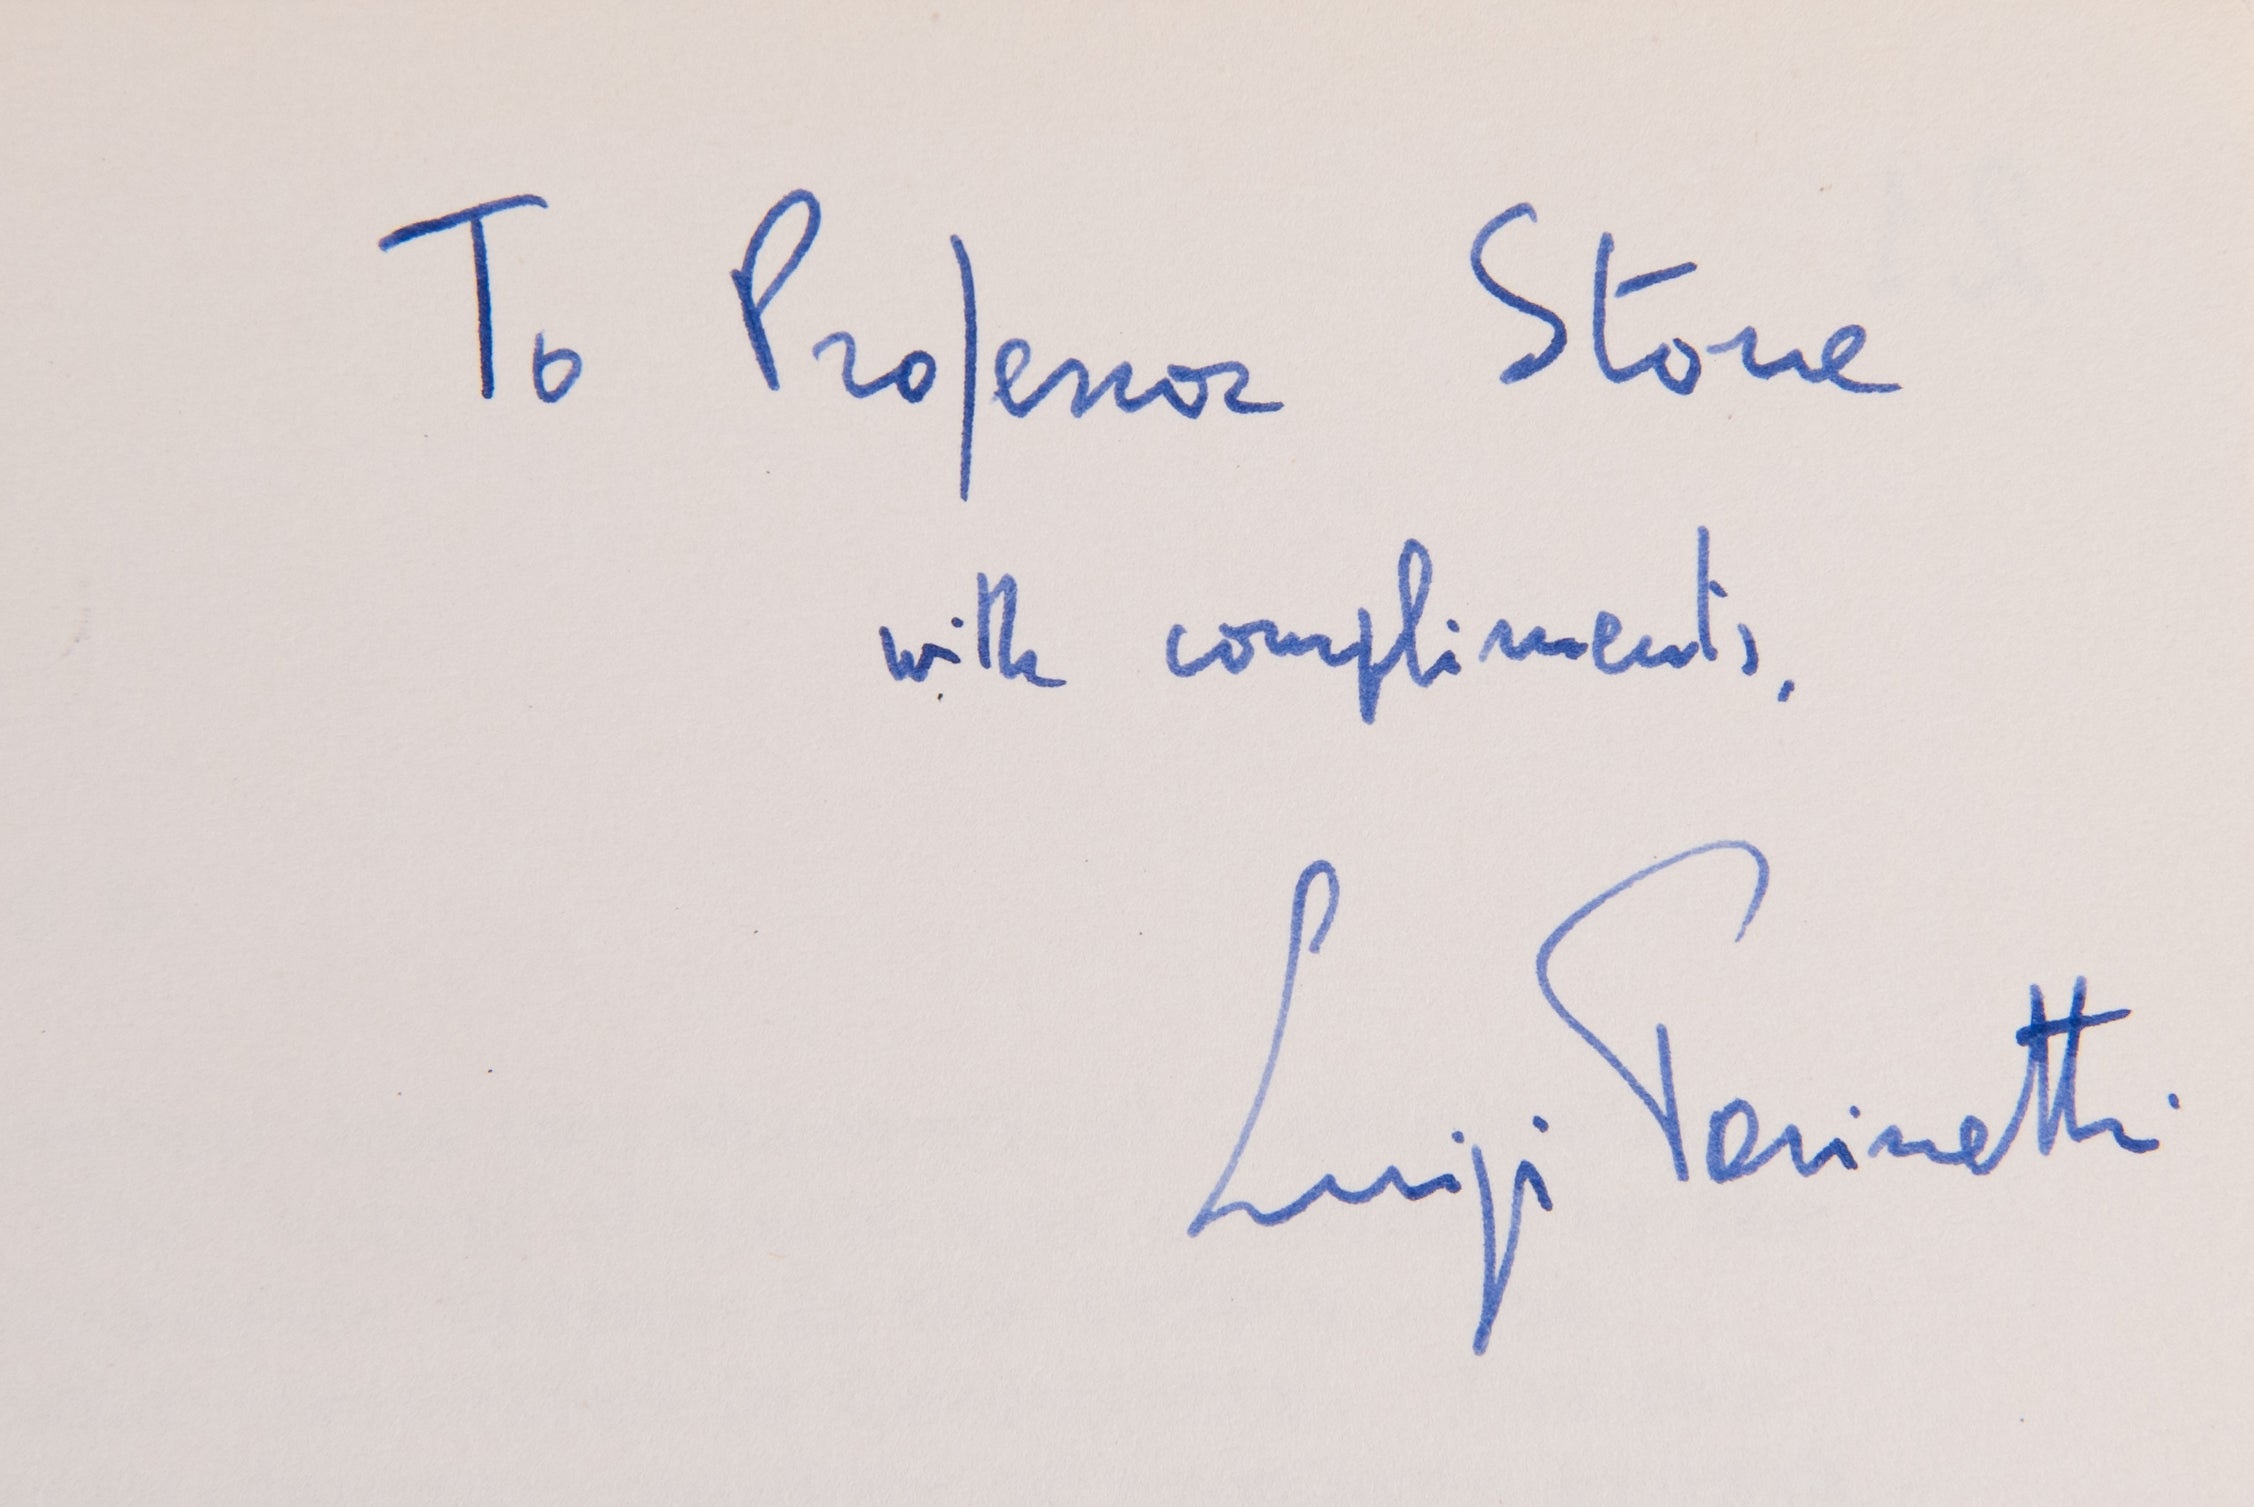 To Professor Stone
with compliments.
Luigi Pasinetti